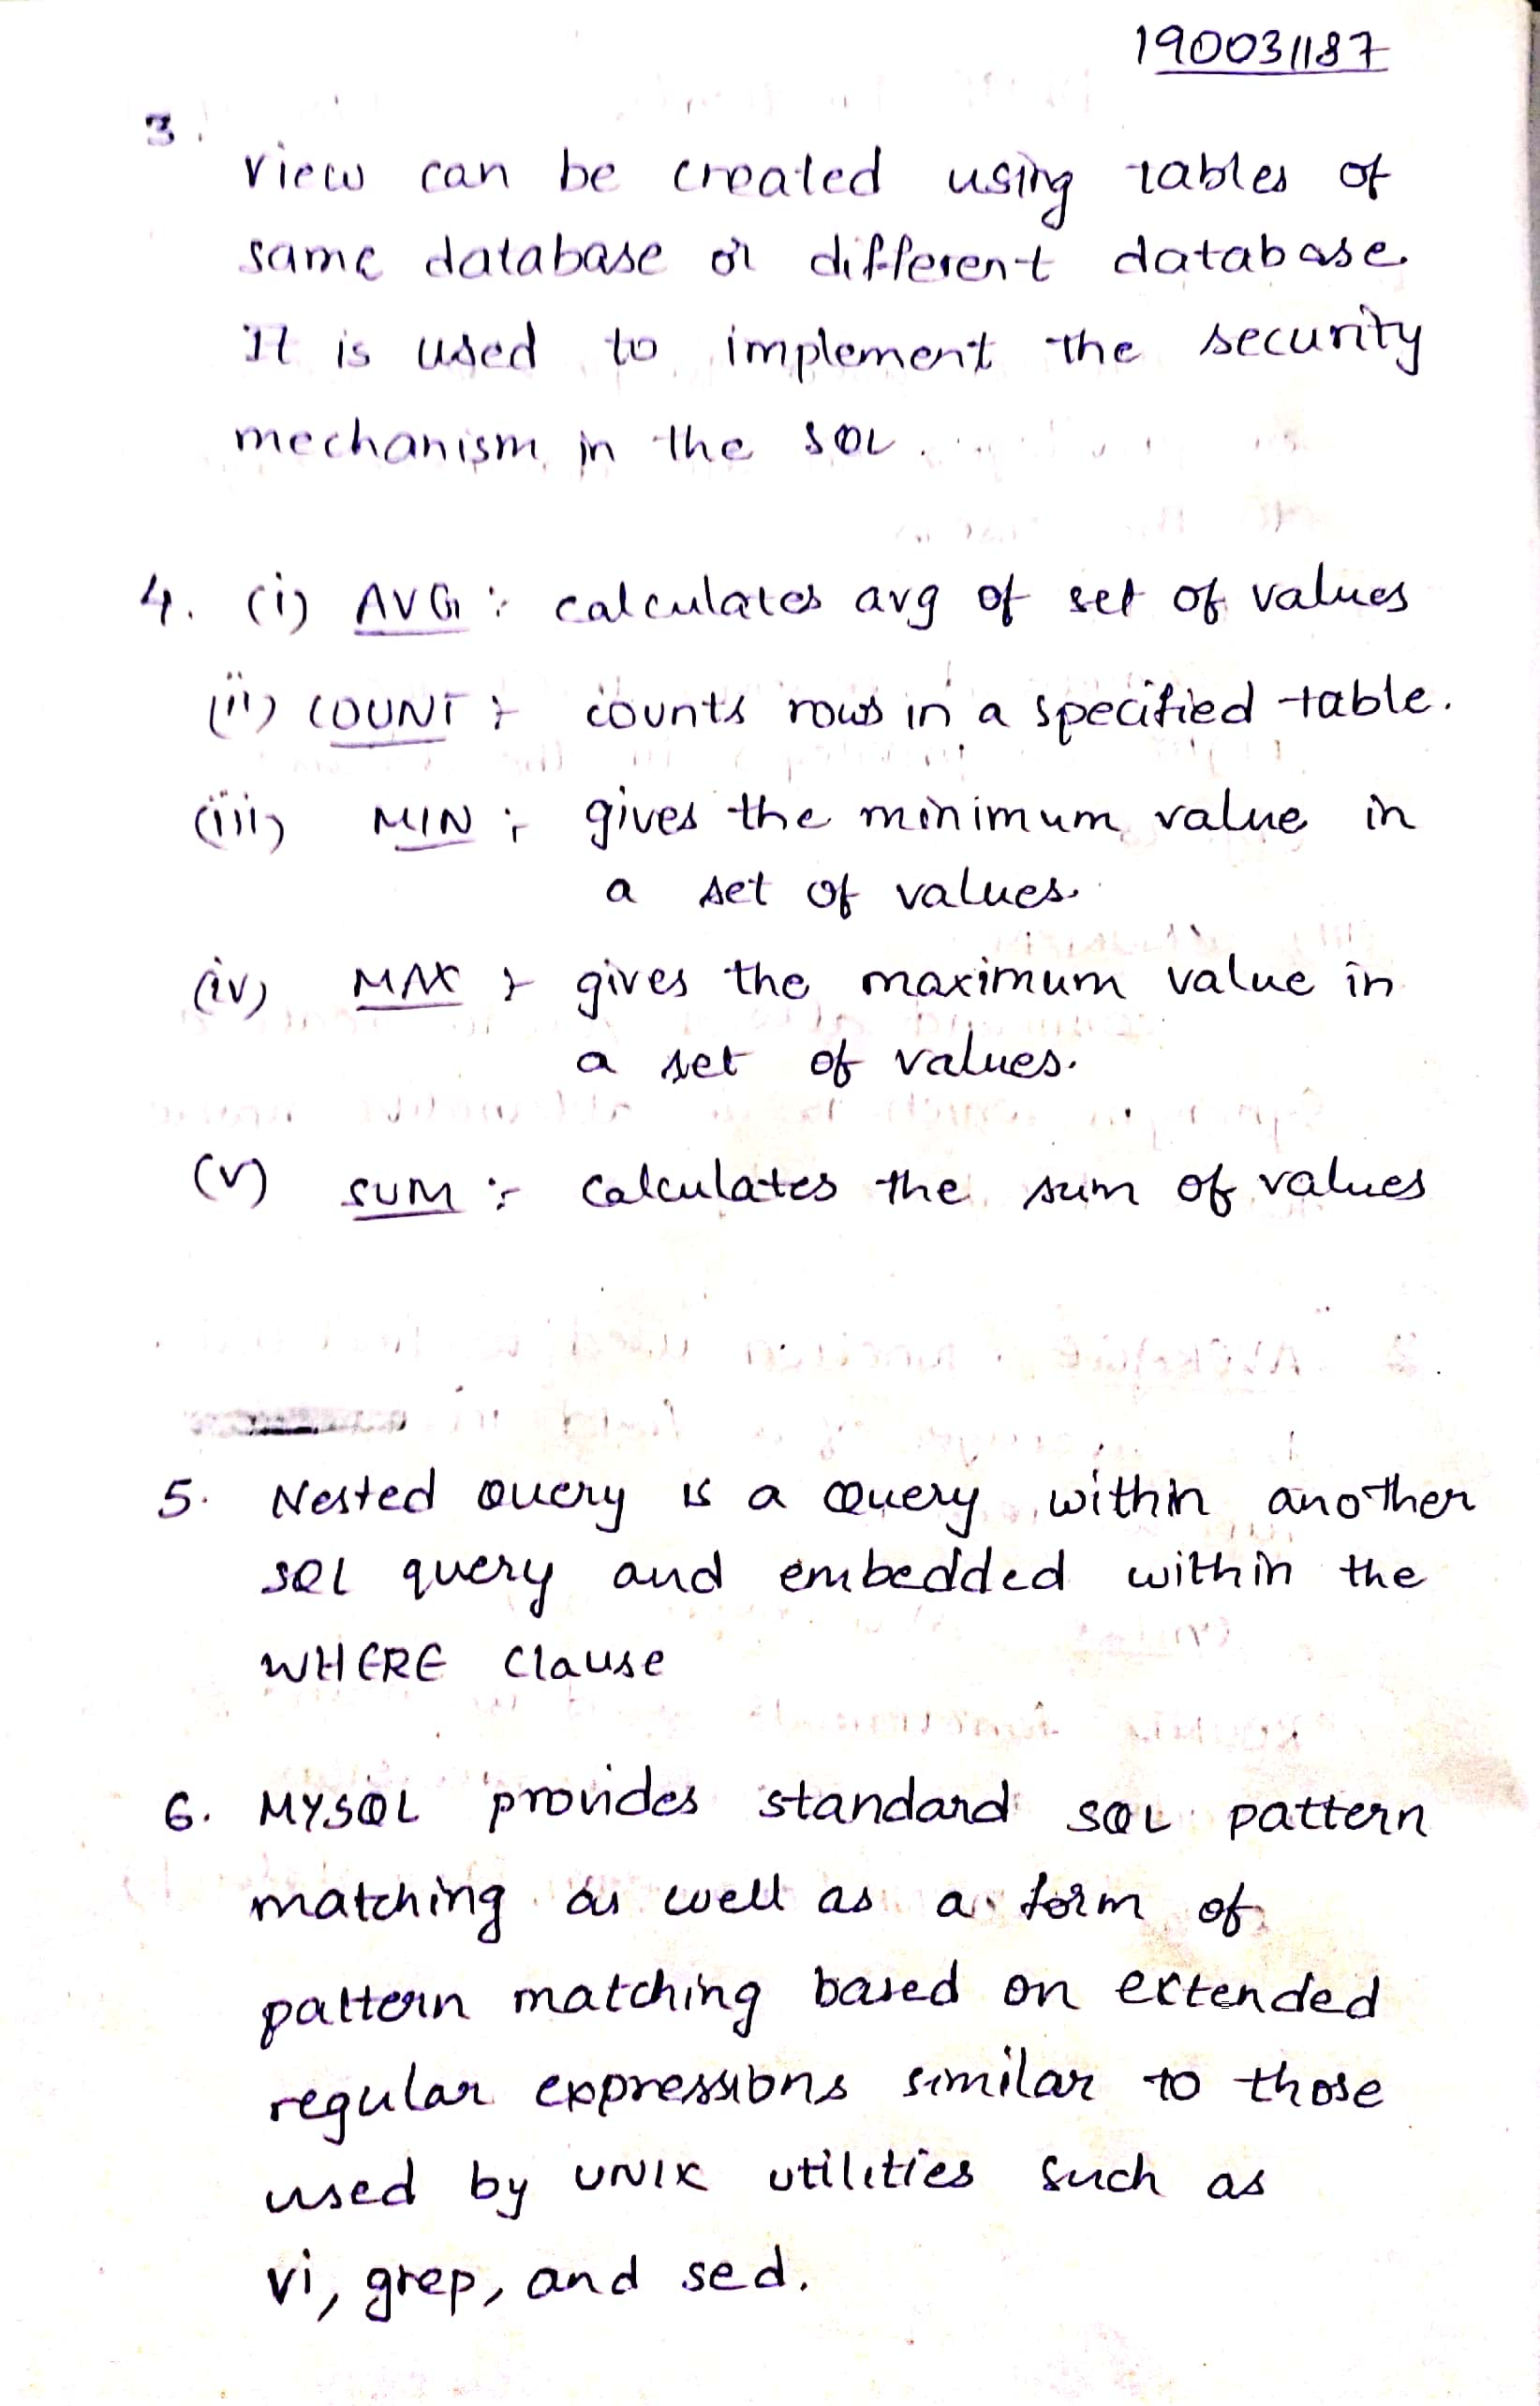 190031187
3.
view can be created using tables of
same database or different database
It is used to implement the security
mechanism in the SQL.
4. (i) AVG :- calculates avg of set of values
(ii) COUNT :- counts rows in a specified table.
(iii) MIN :- gives the minimum value in
a set of values.
(iv) MAX :- gives the maximum value in
a set of values.
(v) SUM :- calculates the sum of values
5. Nested Query is a Query within another
SQL query and embedded within the
WHERE clause
6. MYSQL provides standard SQL pattern
matching as well as a form of
pattern matching based on extended
regular expressions similar to those
used by UNIX utilities such as
vi, grep, and sed.